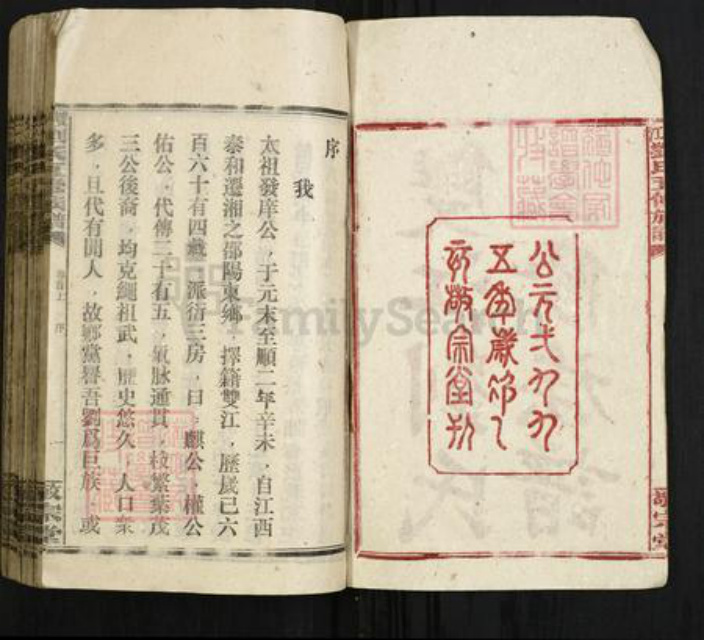 公元弌九九
五年歲次乙
亥敬宗堂刊
序
我
太祖發庠公，于元末至順二年辛未，自江西
泰和遷湘之邵陽東鄉，擇籍雙江，歷歲已六
百六十有四載，派衍三房，曰：麒公，權公
佑公，代傳二十有五，氣脉通貫，枝繁葉茂
三公後裔，均克繩祖武，歷史悠久，人口衆
多，且代有聞人，故鄉黨譽吾劉爲巨族，或
序
一
敬宗堂
FamilySearch